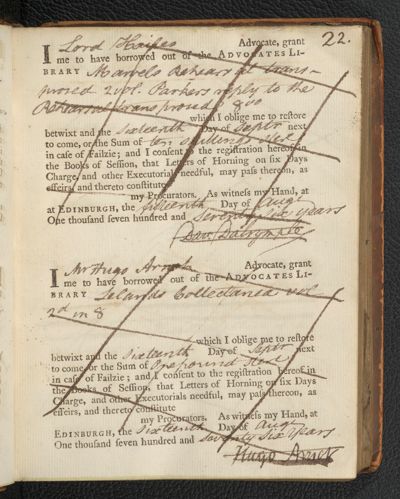 22.
I Lord Hailes Advocate, grant
me to have borrowed out of the ADVOCATES LI-
BRARY Marvels Rehearsal trans-
prosed 2 vol. Parkers reply to the
Rehearsal transprosed 8vo
which I oblige me to restore
betwixt and the Sixteenth Day of Septr next
to come, or the Sum of ten shillings
in case of Failzie; and I consent to the registration hereof in
the Books of Session, that Letters of Horning on six Days
Charge, and other Executorials needful, may pass thereon, as
effeirs, and thereto constitute
my Procurators. As witness my Hand, at
at EDINBURGH, the fifteenth Day of Augt
One thousand seven hundred and Seventy six years
Dav: Dalrymple
I Mr Hugo Arnot Advocate, grant
me to have borrowed out of the ADVOCATES LI-
BRARY Lelands Collectanea vol
2d in 8
which I oblige me to restore
betwixt and the Sixteenth Day of Septr next
to come, or the Sum of One pound Sterl
in case of Failzie; and I consent to the registration hereof in
the Books of Session, that Letters of Horning on six Days
Charge, and other Executorials needful, may pass thereon, as
effeirs, and thereto constitute
my Procurators. As witness my Hand, at
EDINBURGH, the Sixteenth Day of Augt
One thousand seven hundred and Seventy Six Years
Hugo Arnot